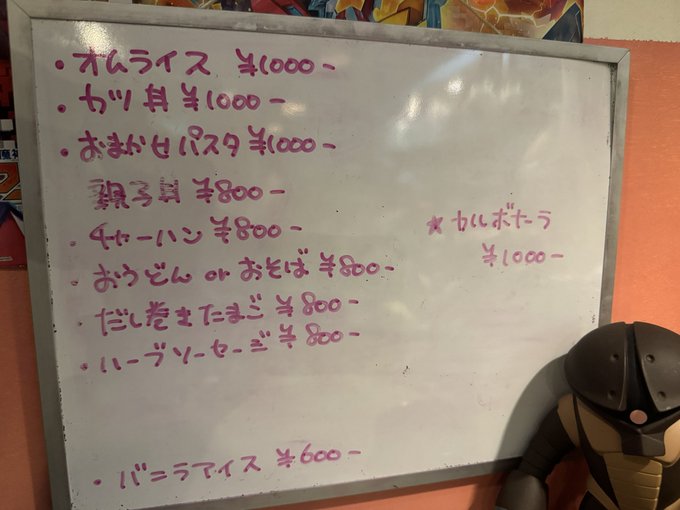 ・オムライス ¥1000-
・カツ丼 ¥1000-
・おまかせパスタ ¥1000-
親子丼 ¥800-
・チャーハン ¥800-
・おうどん or おそば ¥800-
・だし巻きたまご ¥800-
・ハーブソーセージ ¥800-
・バニラアイス ¥600-
★カルボナーラ
¥1000-